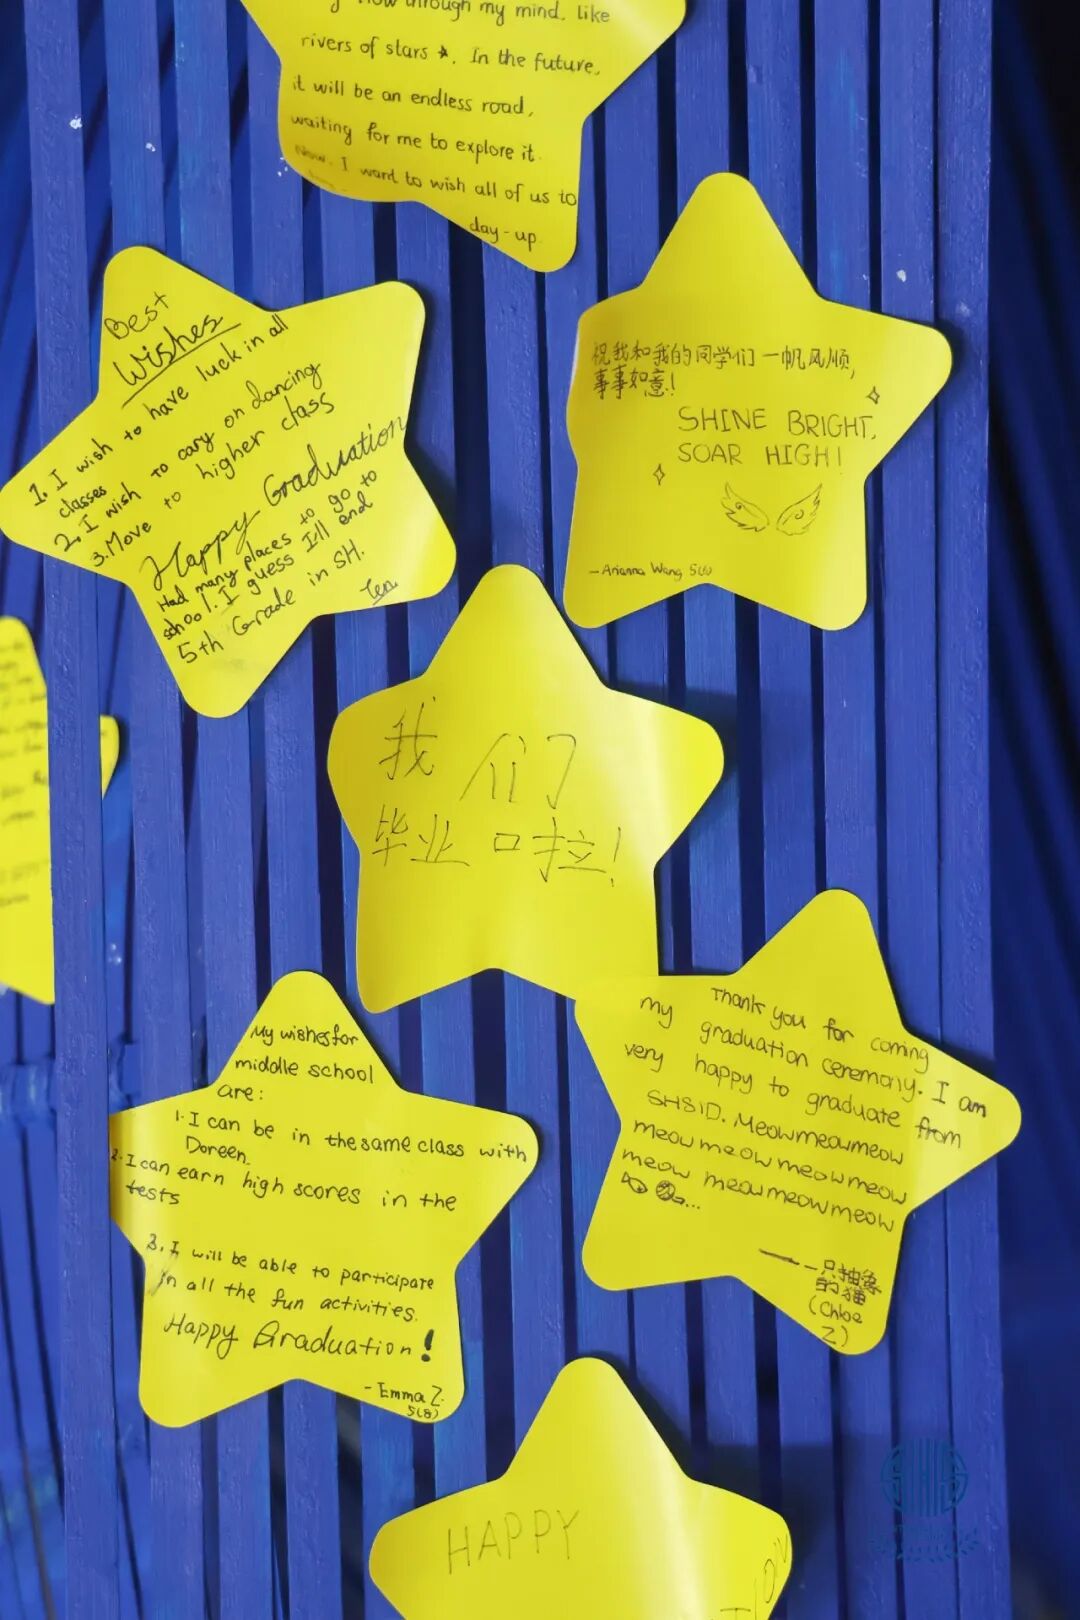 flow through my mind, like
rivers of stars ★. In the future,
it will be an endless road,
waiting for me to explore it.
Now, I want to wish all of us to
day-up.
Best
Wishes
1. I wish to have luck in all
classes
2. I wish to cary on dancing
3. Move to higher class
Happy Graduation
Had many places to go to
school. I guess I'll end
5th Grade in SH.
祝我和我的同学们一帆风顺,
事事如意!
SHINE BRIGHT,
SOAR HIGH!
- Arianna Wang 5(1)
我们
毕业口拉!
My wishes for
middle school
are:
1. I can be in the same class with
Doreen.
2. I can earn high scores in the
tests
3. I will be able to participate
in all the fun activities.
Happy Graduation!
- Emma Z.
5(8)
Thank you for coming
my graduation ceremony. I am
very happy to graduate from
SHSID. Meowmeowmeow
meowmeowmeowmeow
meow meowmeowmeow
...
——一只抽象
的猫
(Chloe
Z)
HAPPY